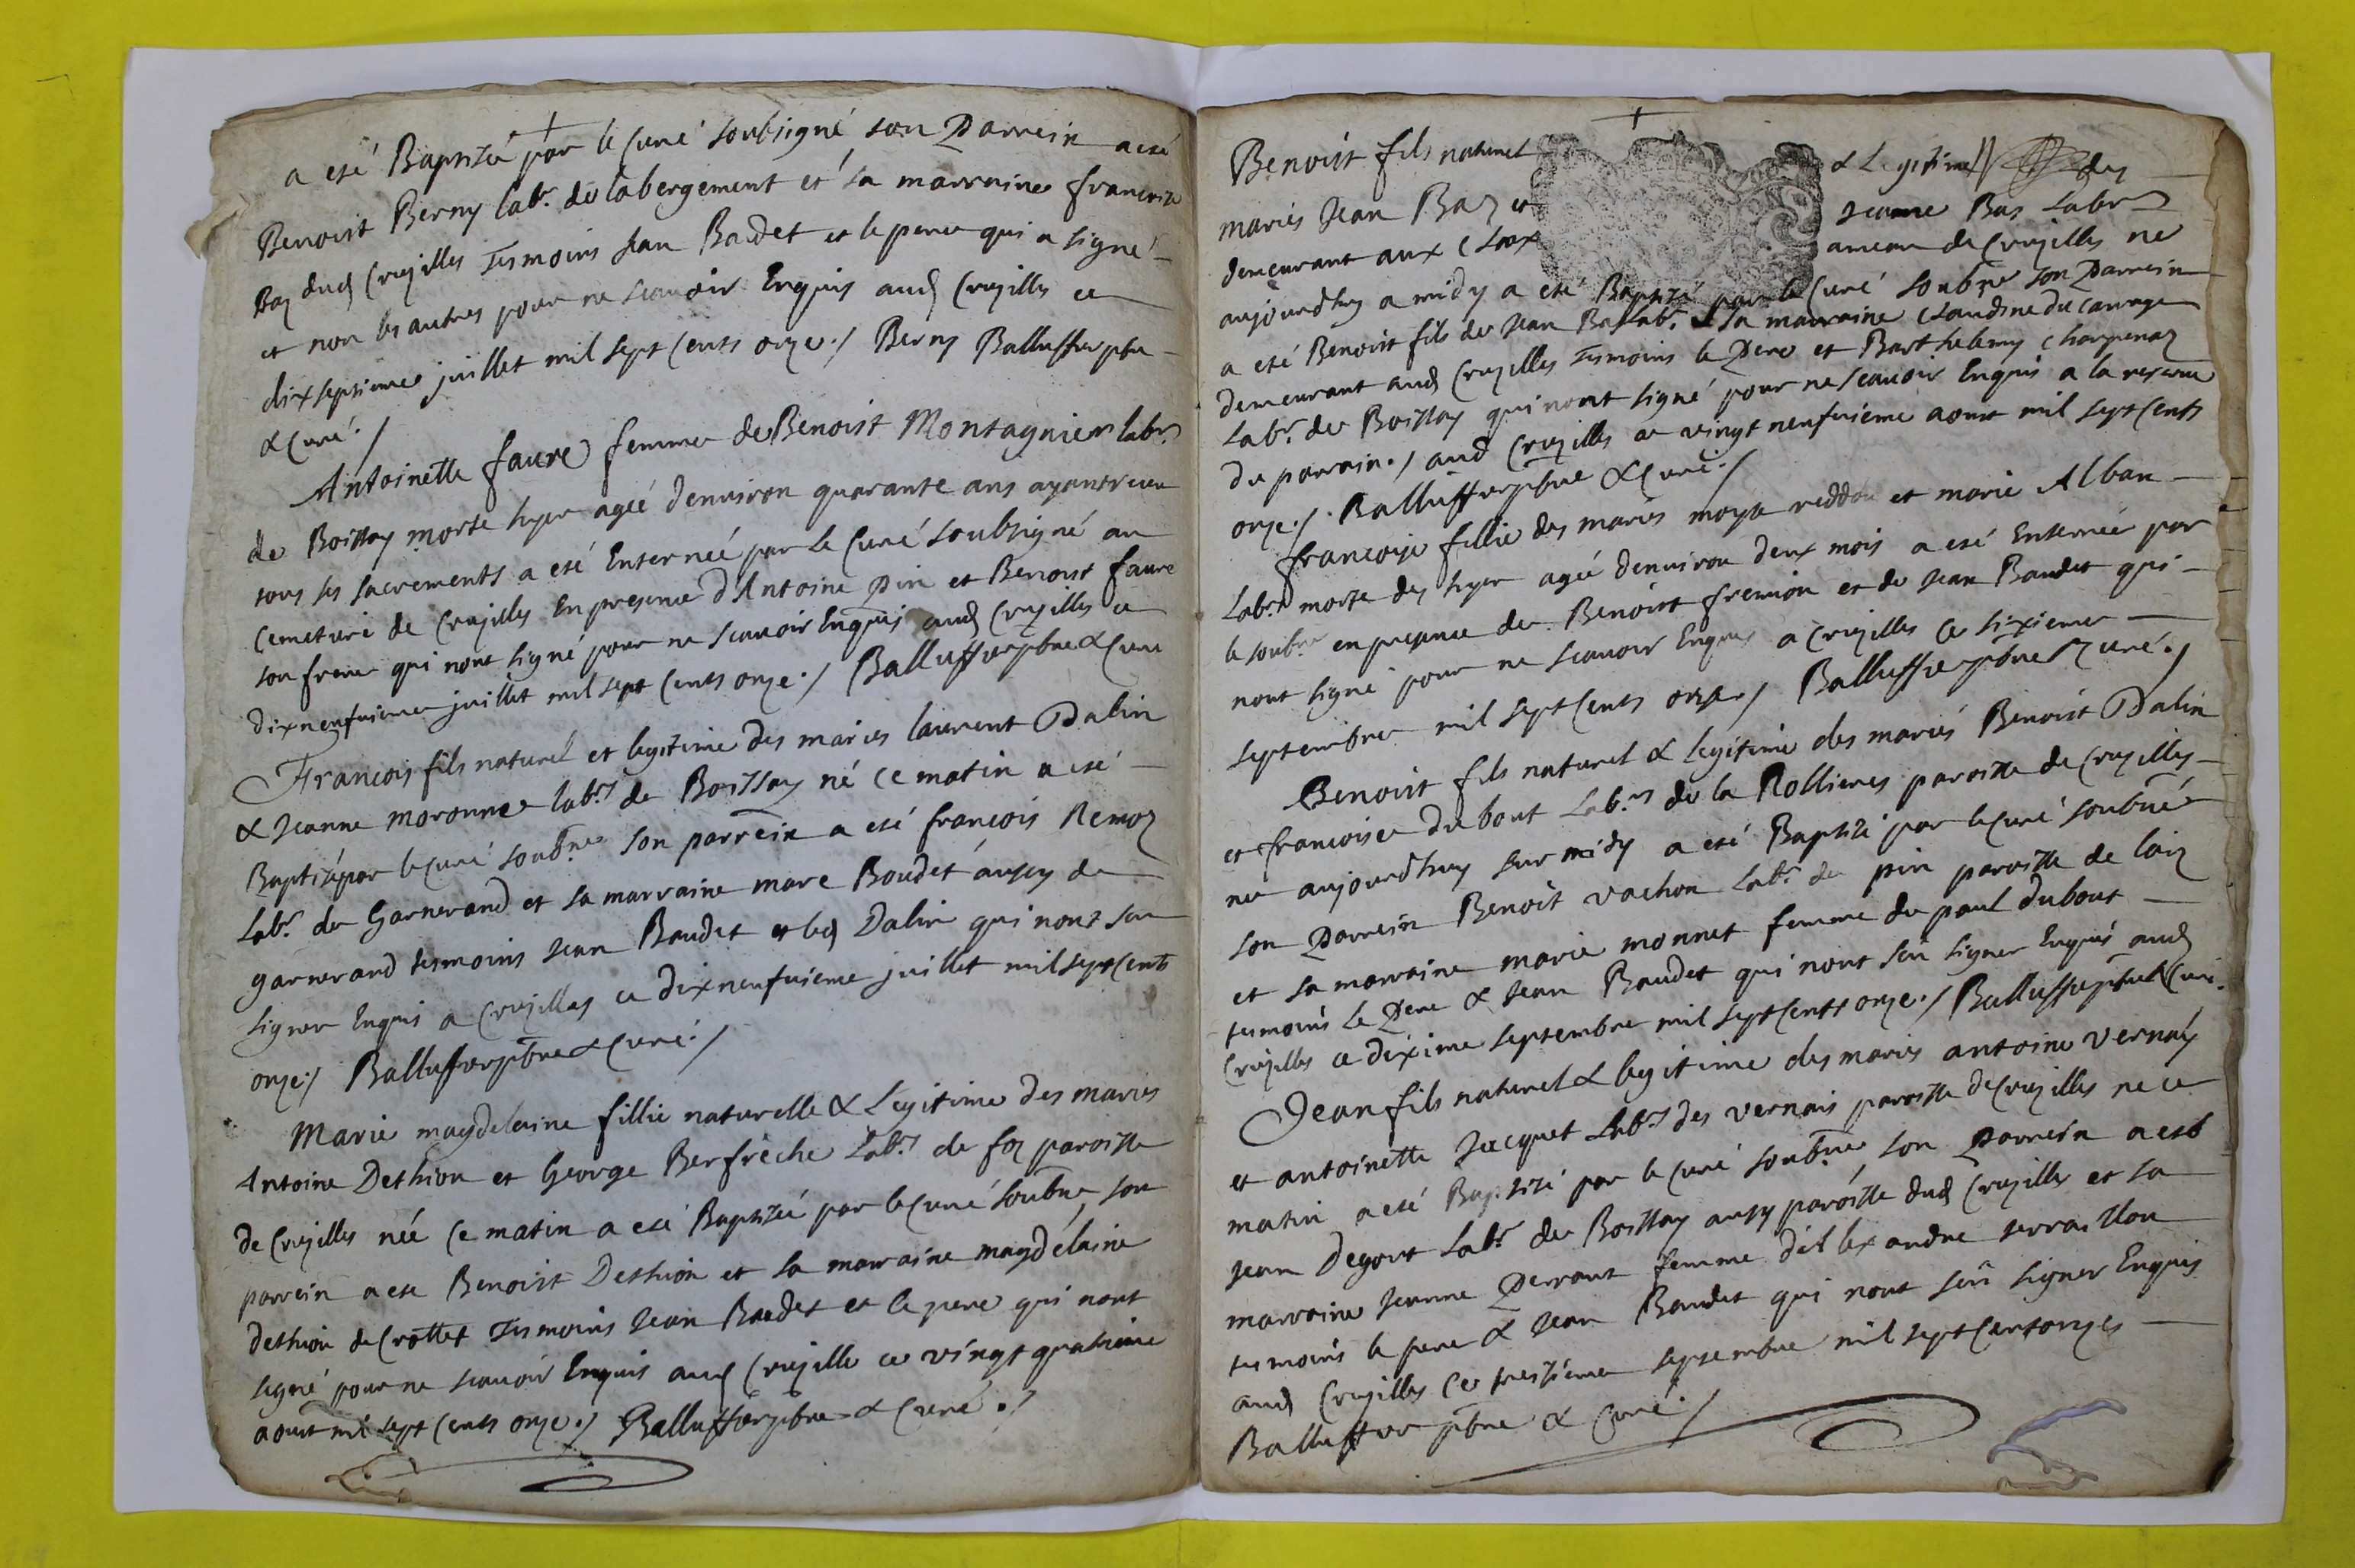 a esté Baptisée par le Curé soubsigné, son Parrein a esté
Benoist Berny labr. de labergement et sa marraine francoise
Baz dud Cruzilles Tesmoins Jean Baudet et le pere qui a signé
et non les autres pour ne scavoir Enquis aud Cruzilles ce
dix septieme juillet mil sept Cents onze./ Berny Balluffier pbre
& Curé./
Antoinette faure femme de Benoist Montagnier labr.
de Boissay morte hyer agéé denuiron quarante ans ayant receu
tous ses sacrements a esté Enterreé par le Curé soubsigné au
Cemetiere de Cruzilles En presence d'Antoine Pin et Benoist faure
son frere qui nont signé pour ne scauoir Enquis aud Cruzilles ce
dix neufuieme juillet mil sept Cents onze./ Balluffier pbre & Curé
Francois fils naturel et legitime des mariés laurent Dalin
& Jeanne moronne labrs de Boissay né ce matin a esté
Baptisé par le Curé soubne son parrein a esté francois Remoz
labr. de Garnerand et sa marraine mare Boudet aussy de
garnerand tesmoins Jean Baudet et led Dalin qui nont seu
signer Enquis a Cruzilles ce dix neufuieme juillet mil sept Cents
onze./ Balluffier pbre & Curé./
Marie magdelaine fillie naturelle & Legitime des mariés
Antoine Dethion et George Berfrêche Labrs de foz paroisse
de Cruzilles née Ce matin a esté Baptisée par le Curé soubne, son
parrein a esté Benoist Dethion et sa marraine magdelaine
dethion de Crottet Tesmoins Jean Baudet et le pere qui nont
signé pour ne scauoir Enquis aud Cruzille ce vingt quatrieme
aoust mil sept Cents onze./ Balluffier pbre & Curé./
Benoist fils naturel & Legitime des
mariés Jean Baz et Jeanne Bas Labrs
demeurant aux ameau de Cruzilles né
aujourdhuy a midy a esté Baptizé par le Curé soubne son Parrein
a esté Benoist fils de Jean Bas labr. & sa marraine Claudine du Carouge
demeurant aud Cruzilles Tesmoins le Pere et Barthelemy Charpenaz
Labr. de Boissay qui nont signé pour ne scauoir Enquis a la reserve
du parrain./ aud Cruzilles ce vingt neufuieme aoust mil sept Cents
onze./. Balluffier pbre & Curé./
francoise fillie des mariés moyse reddou et marie Alban
Labrs morte des hyer agéé denuiron deux mois a esté Enterreé par
le soubne en presence de Benoist fremion et de Jean Baudet qui
nont signé pour ne scauoir Enquis a Cruzilles Ce sixieme
septembre mil sept Cents onze./ Balluffier pbre & Curé./
Benoist fils naturel & legitime des mariés Benoist Dalin
et francoise dubout Labrs de la Rollieres paroisse de Cruzilles
né aujourdhuy sur midy a esté Baptisé par le Curé soubné
son Parrein Benoit vachon labr. de pin paroisse de laiz
et sa marraine marie monnet femme de paul dubout
tesmoins le Pere & Jean Baudet qui nont seu signer Enquis aud
Cruzilles ce dixime septembre mil sept Cents onze./ Balluffier pbre & Curé.
Jean fils naturel & legitime des mariés antoine vernay
et antoinette Jacquet labrs des vernais paroisse de Cruzilles né ce
matin a esté Baptisé par le Curé soubne son Parrein a esté
Jean Degout labr. de Boissay aussy paroisse dud Cruzilles et sa
marraine Jeanne Perraut femme d'Allexandre terraillon
tesmoins le pere & Jean Baudet qui nont seu signer Enquis
aud Cruzilles Ce treizieme septembre mil sept Cent onze
Balluffier pbre & Curé./